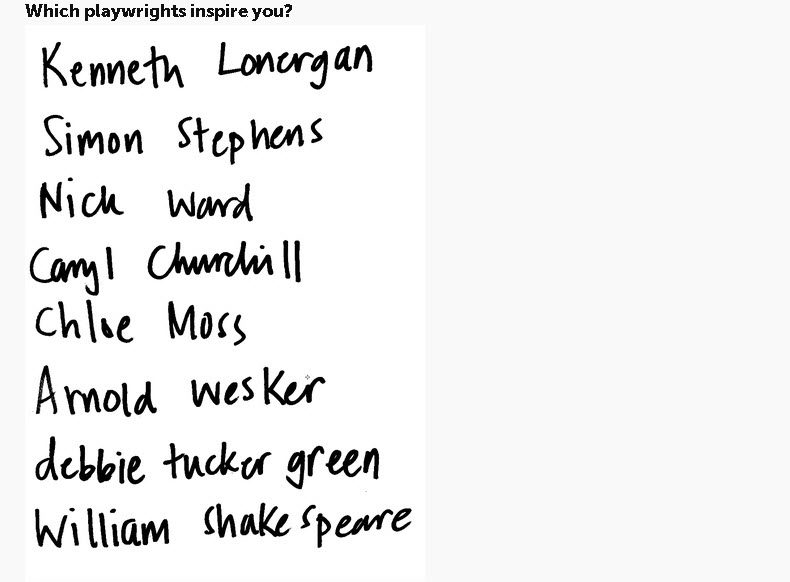 Which playwrights inspire you?
Kenneth Lonergan
Simon Stephens
Nick Ward
Caryl Churchill
Chloe Moss
Arnold Wesker
debbie tucker green
William Shakespeare